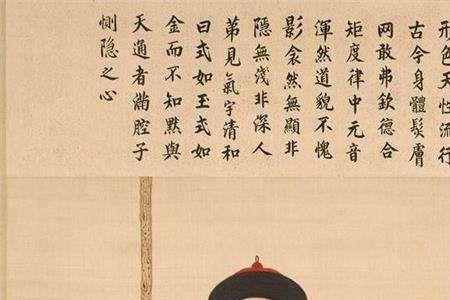 形色天性流行
古今身體髮膚
网敢弗欽德合
矩度律中元音
渾然道貌不愧
影衾然無顯非
隱無淺非深人
苐見氣宇清和
曰式如玉式如
金而不知默與
天通者滿腔子
惻隐之心